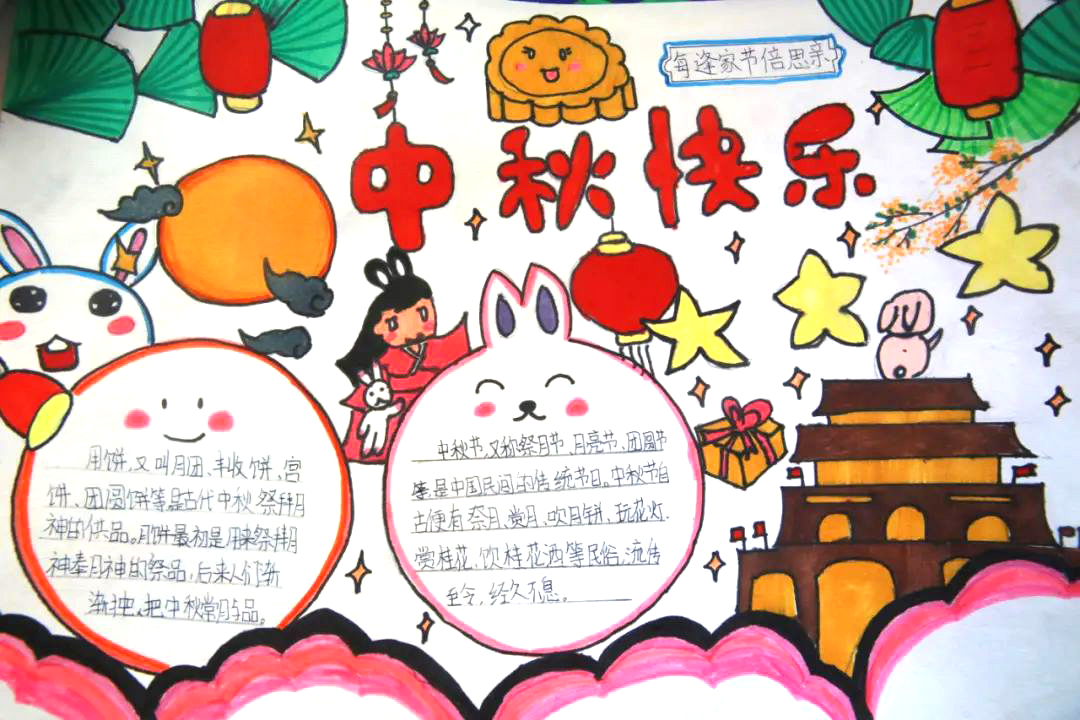 每逢家节倍思亲
中秋快乐
月饼,又叫月团、丰收饼、宫
饼、团圆饼等是古代中秋祭拜月
神的供品。月饼最初是用来祭拜月
神奉月神的祭品,后来人们渐
渐把 把中秋赏月与品。
中秋节,又称祭月节、月亮节、团圆节
等是中国民间的传统节日。中秋节自
古便有祭月、赏月、吃月饼、玩花灯.
赏桂花、饮桂花酒等民俗,流传
至今,经久不息。